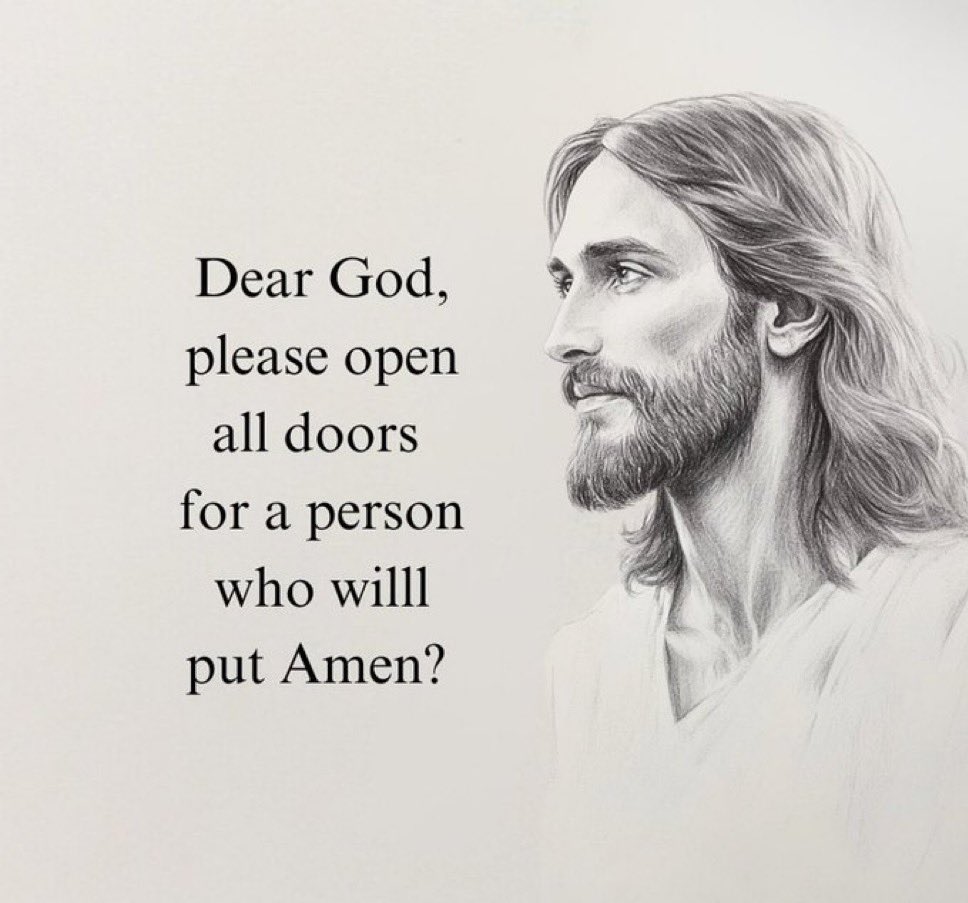 Dear God,
please open
all doors
for a person
who willl
put Amen?